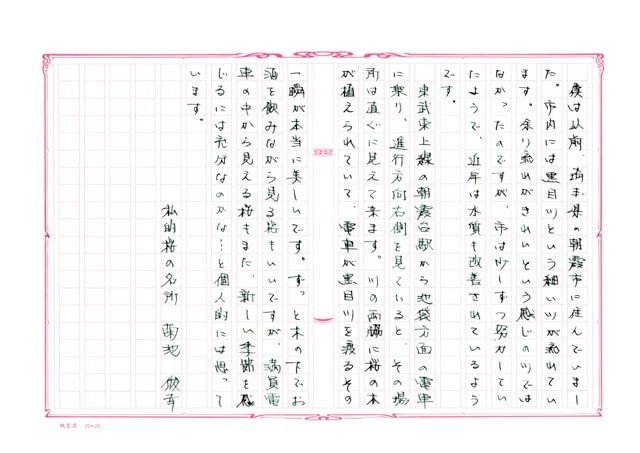 僕は以前、埼玉県の朝霞市に住んでいまし
た。市内には黒目川という細い川が流れてい
ます。余り流れがきれいという感じの川では
なかったのですが、市は少しずつ努力してい
たようで、近年は水質も改善されているよう
です。
東武東上線の朝霞台駅から池袋方面の電車
に乗り、進行方向右側を見ていると、その場
所は直ぐに見えて来ます。川の両脇に桜の木
が植えられていて、電車が黒目川を渡るその
一瞬が本当に美しいです。ずっと木の下でお
酒を飲みながら見る桜もいいですが、満員電
車の中から見える桜もまた、新しい季節を感
じるには充分なのかな…と個人的には思って
います。
私的桜の名所 菊池
20×20